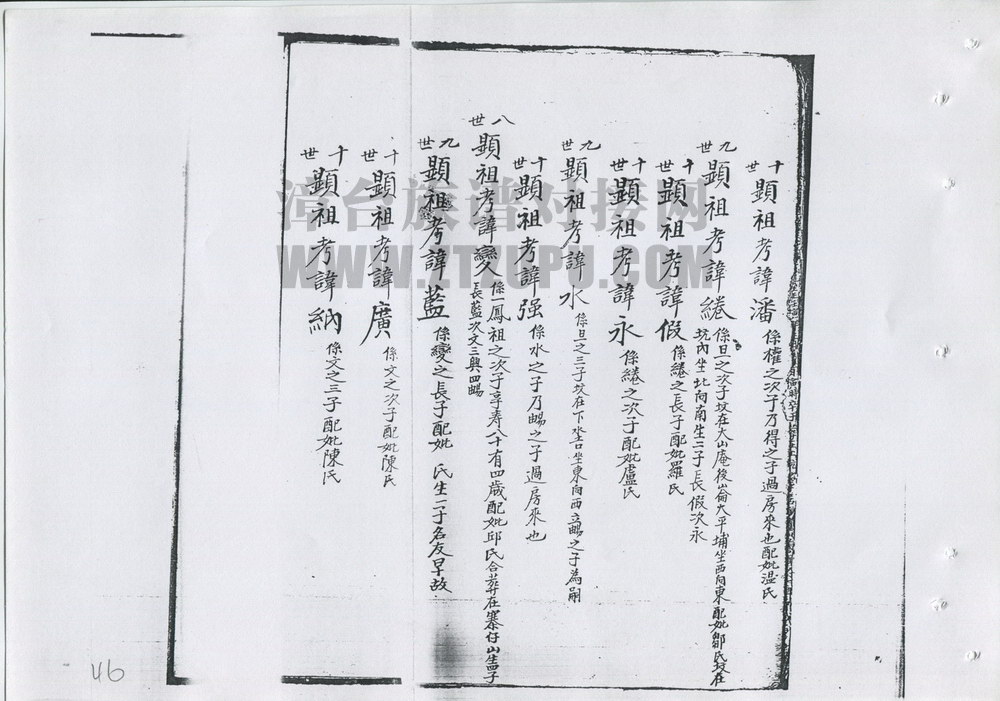 十世
顯祖考諱潘
係權之次子乃得之子過房來也配妣温氏
九世
顯祖考諱綣
係旦之次子坟在大山庵後崙大平埔坐西向東配妣鄒氏坟在
坑內坐北向南生二子長假次永
十世
顯祖考諱假
係綣之長子配妣羅氏
十世
顯祖考諱永
係綣之次子配妣盧氏
九世
顯祖考諱水
係旦之三子坟在下坐東向西立賜之子為嗣
十世
顯祖考諱强
係水之子乃賜之子過房來也
八世
顯祖考諱變
係一鳳祖之次子享寿八十有四歲配妣邱氏合葬在寨仔山生四子
長藍次文三興四賜
九世
顯祖考諱藍
係變之長子配妣 氏生一子名友早故
十世
顯祖考諱廣
係文之次子配妣陳氏
十世
顯祖考諱納
係文之三子配妣陳氏
漳台族谱对接网
WWW.ZTZUPU.COM
46